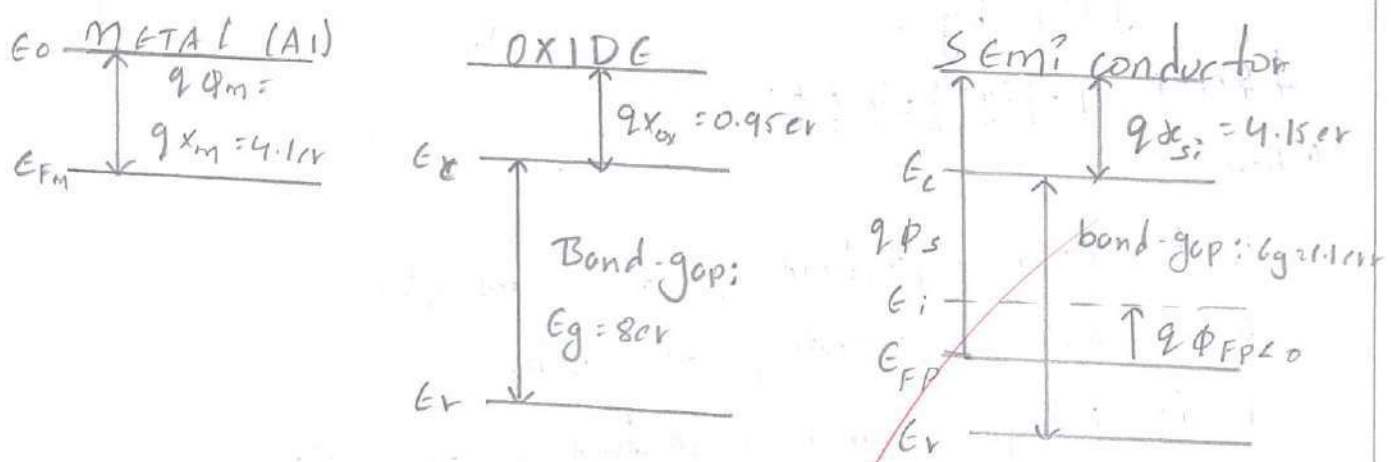 METAL (Al)
E0
qΦm =
qxm = 4.1ev
EFm
OXIDE
qxox = 0.95ev
Ec
Band-gap:
Eg = 8ev
Ev
SEmi conductor
qxsi = 4.15ev
Ec
qΦs
band-gap: Eg=1.1ev
Ei
qΦFp<0
EFp
Ev